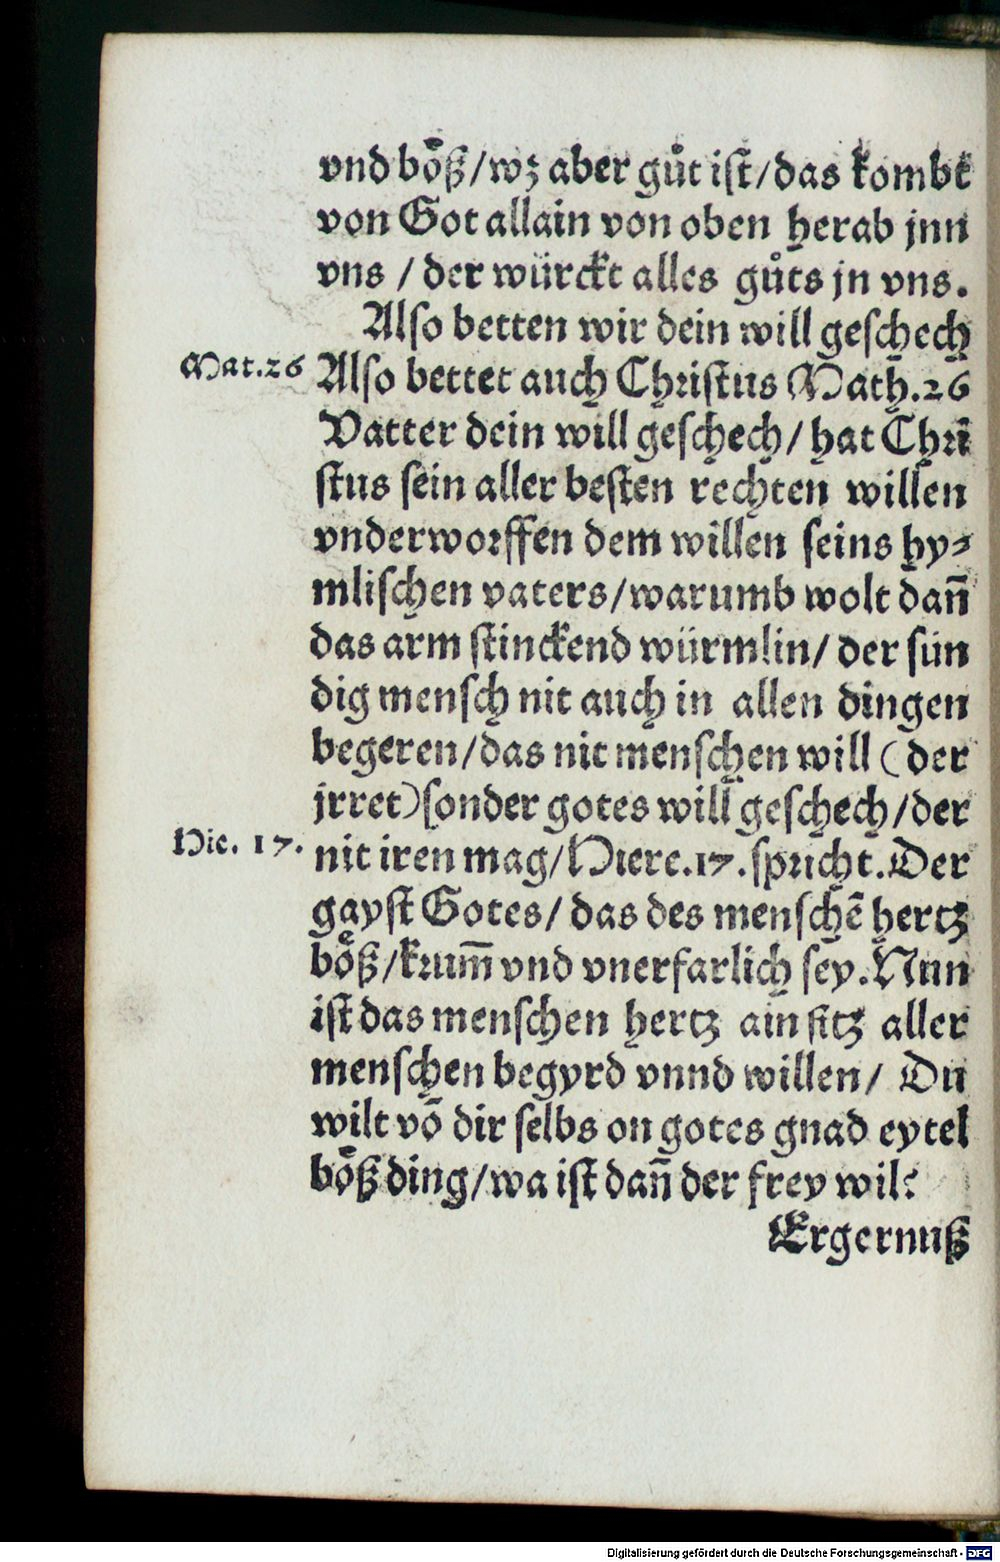 vnd boͤß/wz aber guͦt iſt/das kombt
von Got allain von oben herab jnn
vns / der würckt alles guͦts jn vns.
Alſo betten wir dein will geſchech
Mat.26
Alſo bettet auch Chꝛiſtus Math.26
Vatter dein will geſchech/ hat Chꝛi
ſtus ſein aller beſten rechten willen
vnderwoꝛffen dem willen ſeins hy⸗
mliſchen vaters/warumb wolt dañ
das arm ſtinckend würmlin/ der ſün
dig menſch nit auch in allen dingen
begeren/das nit menſchen will (der
jrret)ſonder gotes will geſchech/der
Hie. 17.
nit iren mag/Hiere.17.ſpꝛicht.Der
gayſt Gotes/ das des menſchē hertz
boͤß/kꝛum̄ vnd vnerfarlich ſey.Nun
iſt das menſchen hertz ain ſitz aller
menſchen begyrd vnnd willen/ Du
wilt vō dir ſelbs on gotes gnad eytel
boͤß ding/wa iſt dañ der frey wil?
Ergernuß
Digitalisierung gefördert durch die Deutsche Forschungsgemeinschaft - DFG